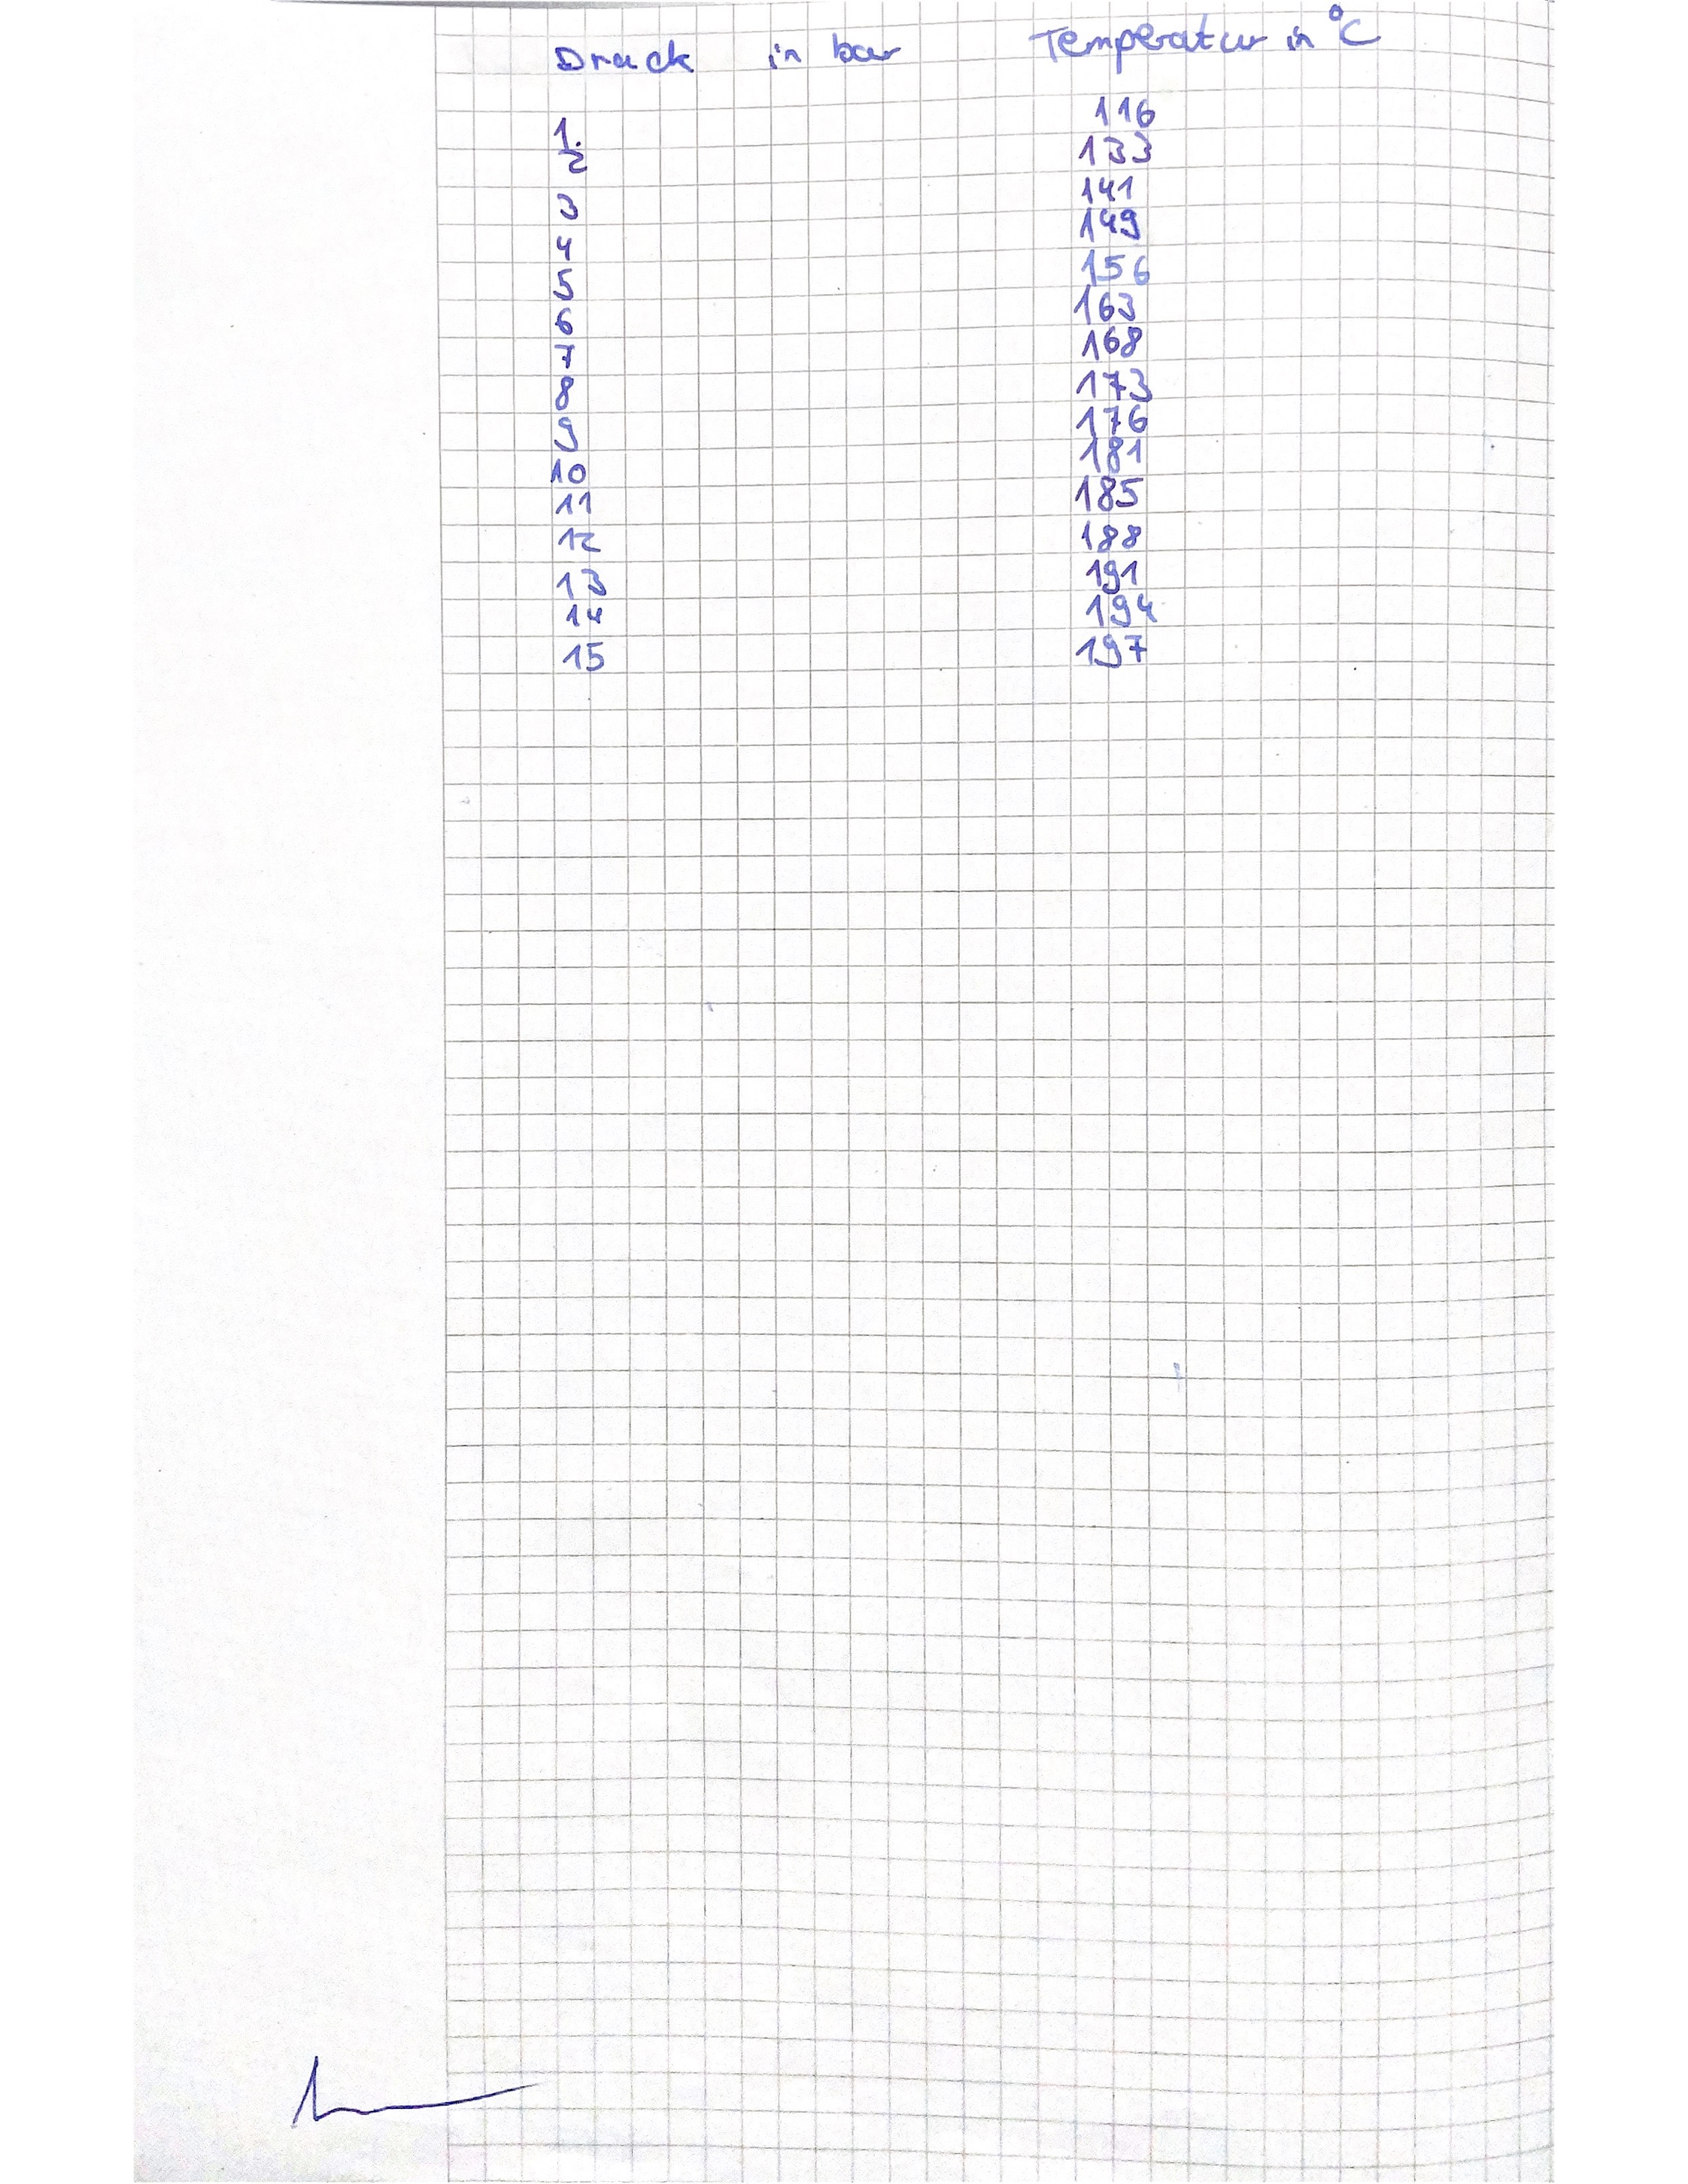 Druck in bar Temperatur in °C
1. 116
2 133
3 141
4 149
5 156
6 163
7 168
8 173
9 176
10 181
11 185
12 188
13 191
14 194
15 197